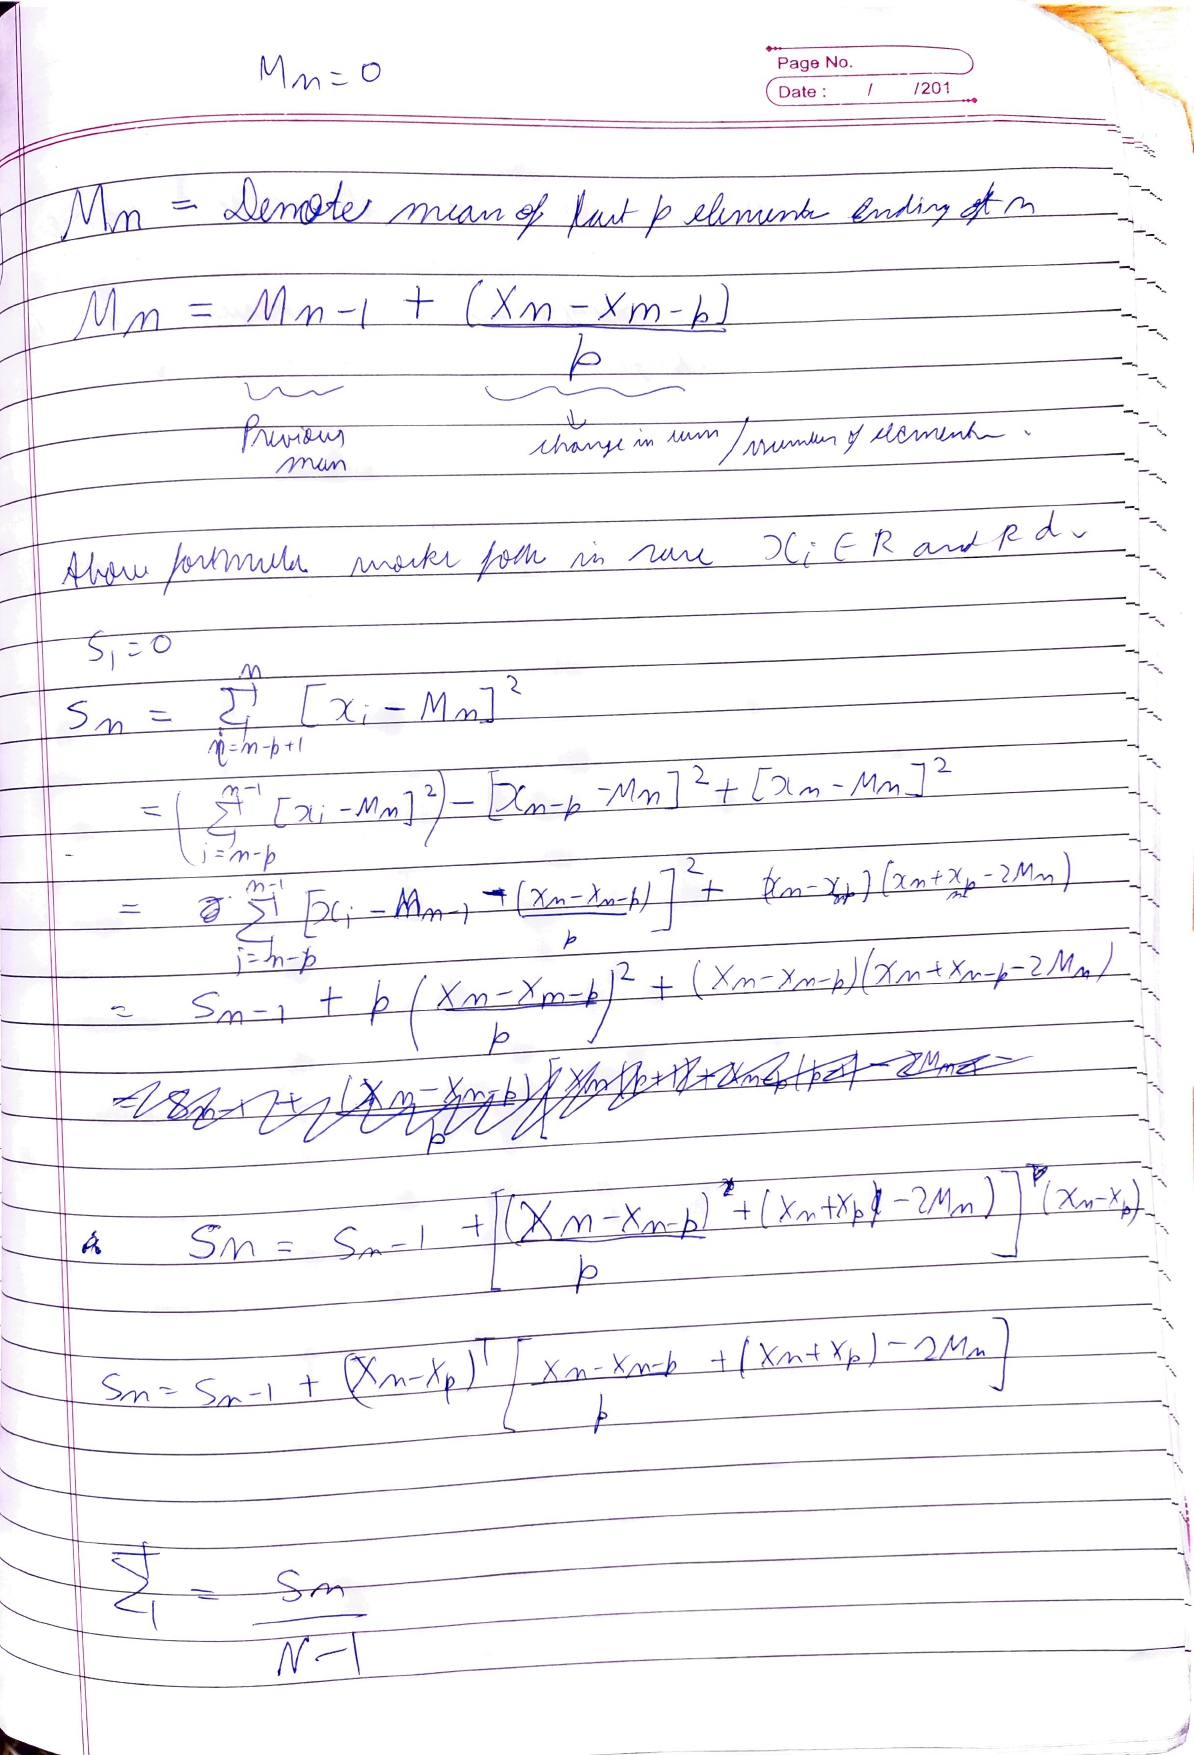 Mn = 0
Page No.
Date : / /201
Mn = Denote mean of last p elements ending at n
Mn = Mn-1 + (Xn - Xn-p)/p
Previous mean
change in sum / number of elements.
Above formula works for in case xi ∈ R and R d.
S1 = 0
Sn = Σ_{i=n-p+1}^{n} [xi - Mn]^2
= (Σ_{i=n-p}^{n-1} [xi - Mn]^2) - [xn-p - Mn]^2 + [xn - Mn]^2
= Σ_{i=n-p}^{n-1} [xi - Mn-1 - (xn - xn-p)/p]^2 + (xn - xp)(xn + xp - 2Mn)
= Sn-1 + p ((Xn - Xn-p)/p)^2 + (Xn - Xn-p)(Xn + Xn-p - 2Mn)
Sn = Sn-1 + [(Xn - Xn-p)/p + (Xn + Xp - 2Mn)]^T (Xn - Xp)
Sn = Sn-1 + (Xn - Xp)^T [(Xn - Xn-p)/p + (Xn + Xp) - 2Mn]
Σ1 = Sn/(N-1)